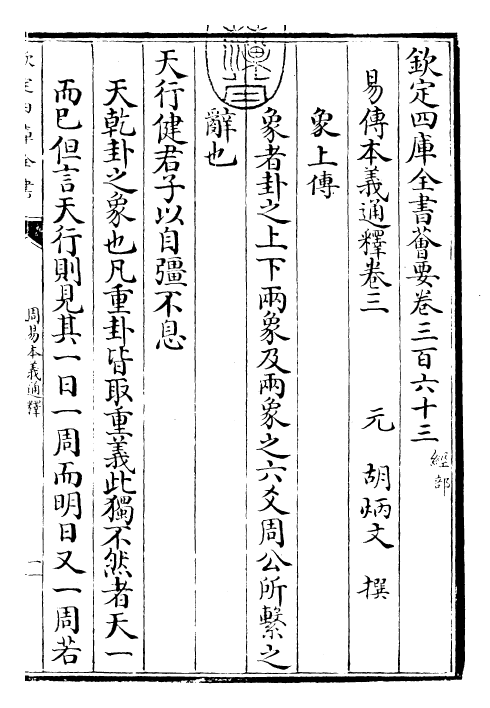 欽定四庫全書薈要卷三百六十三 經部
易傳本義通釋卷三 元 胡炳文 撰
象上傳
象者卦之上下兩象及兩象之六爻周公所繫之
辭也
天行健君子以自彊不息
天乾卦之象也凡重卦皆取重義此獨不然者天一
而已但言天行則見其一日一周而明日又一周若
欽定四庫全書
周易本義通釋
一